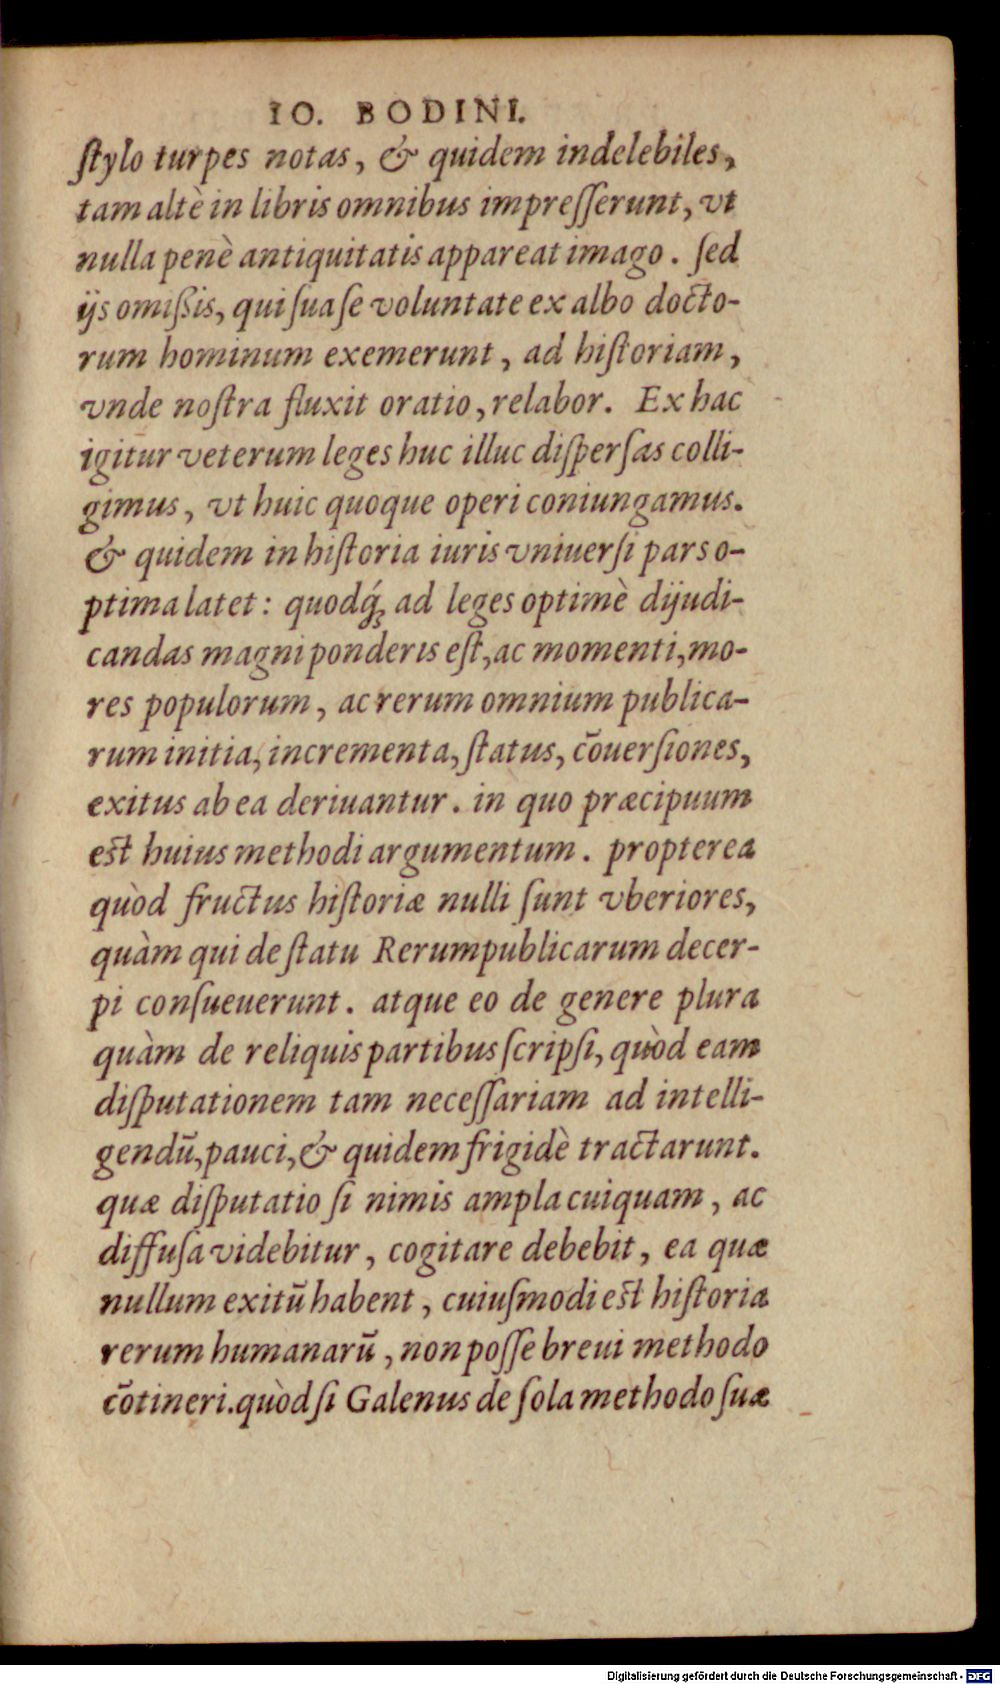 IO. BODINI.
ſtylo turpes notas, & quidem indelebiles,
tam altè in libris omnibus impreſſerunt, vt
nulla penè antiquitatis appareat imago. ſed
ijs omißis, qui ſua ſe voluntate ex albo docto-
rum hominum exemerunt, ad hiſtoriam,
vnde noſtra fluxit oratio, relabor. Ex hac
igitur veterum leges huc illuc diſperſas colli-
gimus, vt huic quoque operi coniungamus.
& quidem in hiſtoria iuris vniuerſi pars o-
ptima latet: quodq́; ad leges optimè dijudi-
candas magni ponderis eſt, ac momenti, mo-
res populorum, ac rerum omnium publica-
rum initia, incrementa, ſtatus, cōuerſiones,
exitus ab ea deriuantur. in quo præcipuum
est huius methodi argumentum. propterea
quòd fructus hiſtoriæ nulli ſunt vberiores,
quàm qui de ſtatu Rerumpublicarum decer-
pi conſueuerunt. atque eo de genere plura
quàm de reliquis partibus ſcripſi, quòd eam
diſputationem tam neceſſariam ad intelli-
gendū, pauci, & quidem frigidè tractarunt.
quæ diſputatio ſi nimis ampla cuiquam, ac
diffuſa videbitur, cogitare debebit, ea quæ
nullum exitū habent, cuiuſmodi est hiſtoria
rerum humanarū, non poſſe breui methodo
cōtineri. quòd ſi Galenus de ſola methodo ſuæ
Digitalisierung gefördert durch die Deutsche Forschungsgemeinschaft - DFG